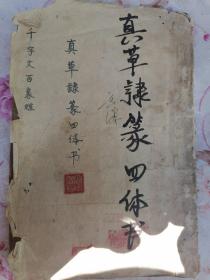 真草隸篆四体书
真草隸篆四体书
千字文百家姓